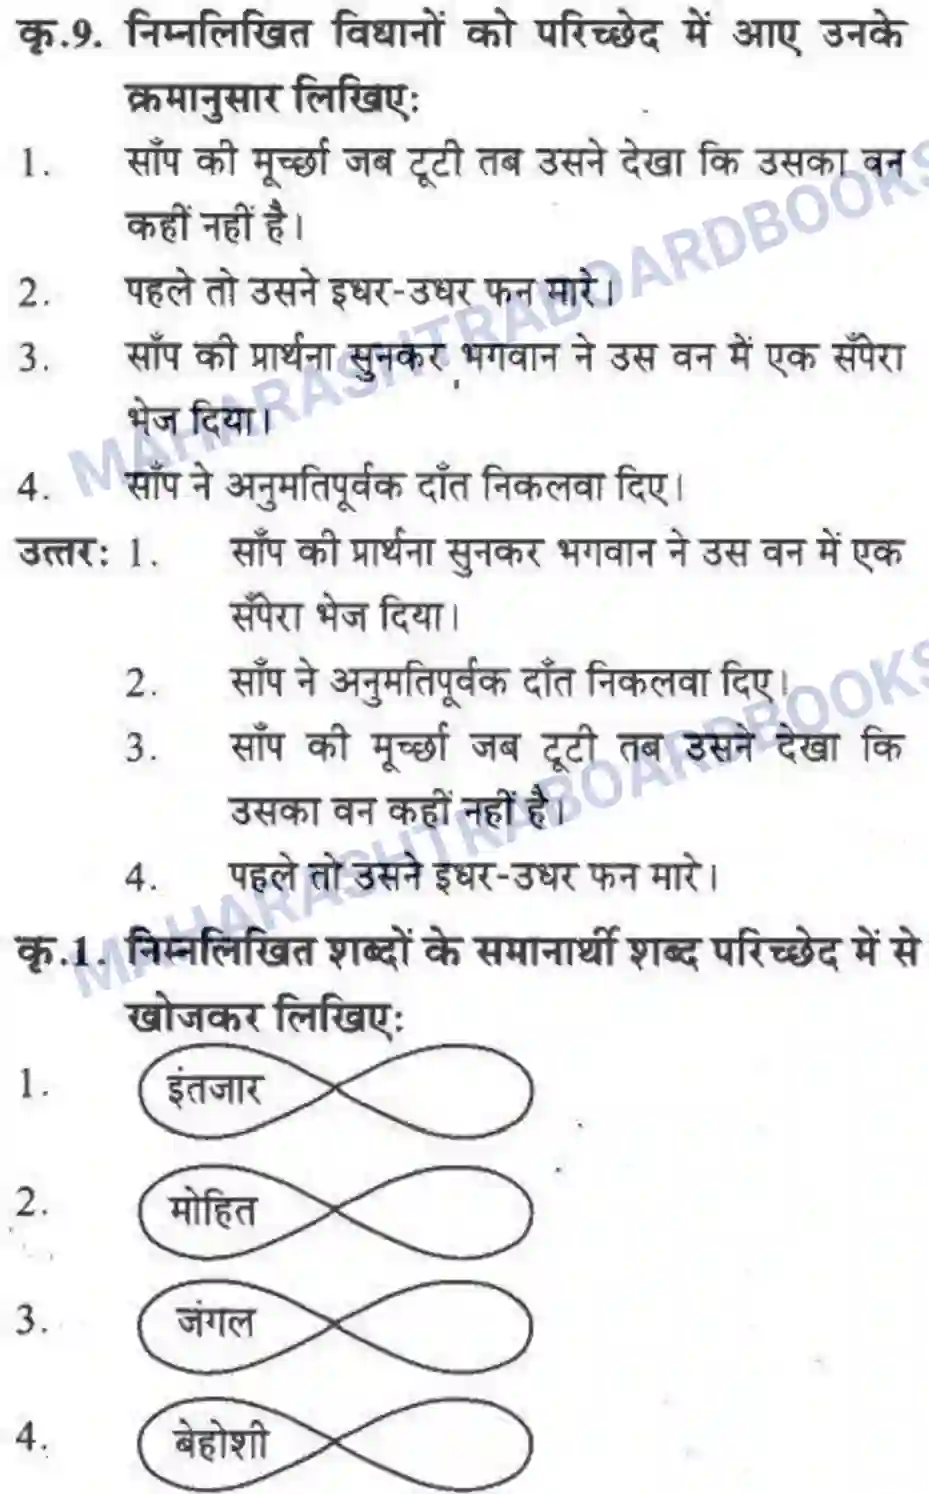 कृ.9. निम्नलिखित विधानों को परिच्छेद में आए उनके
क्रमानुसार लिखिए:
1. साँप की मूर्च्छा जब टूटी तब उसने देखा कि उसका वन
कहीं नहीं है।
2. पहले तो उसने इधर-उधर फन मारे।
3. साँप की प्रार्थना सुनकर भगवान ने उस वन में एक सँपेरा
भेज दिया।
4. साँप ने अनुमतिपूर्वक दाँत निकलवा दिए।
उत्तर: 1. साँप की प्रार्थना सुनकर भगवान ने उस वन में एक
सँपेरा भेज दिया।
2. साँप ने अनुमतिपूर्वक दाँत निकलवा दिए।
3. साँप की मूर्च्छा जब टूटी तब उसने देखा कि
उसका वन कहीं नहीं है।
4. पहले तो उसने इधर-उधर फन मारे।
कृ.1. निम्नलिखित शब्दों के समानार्थी शब्द परिच्छेद में से
खोजकर लिखिए:
1. इंतजार
2. मोहित
3. जंगल
4. बेहोशी
MAHARASHTRABOARDBOOKS
MAHARASHTRABOARDBOOKS